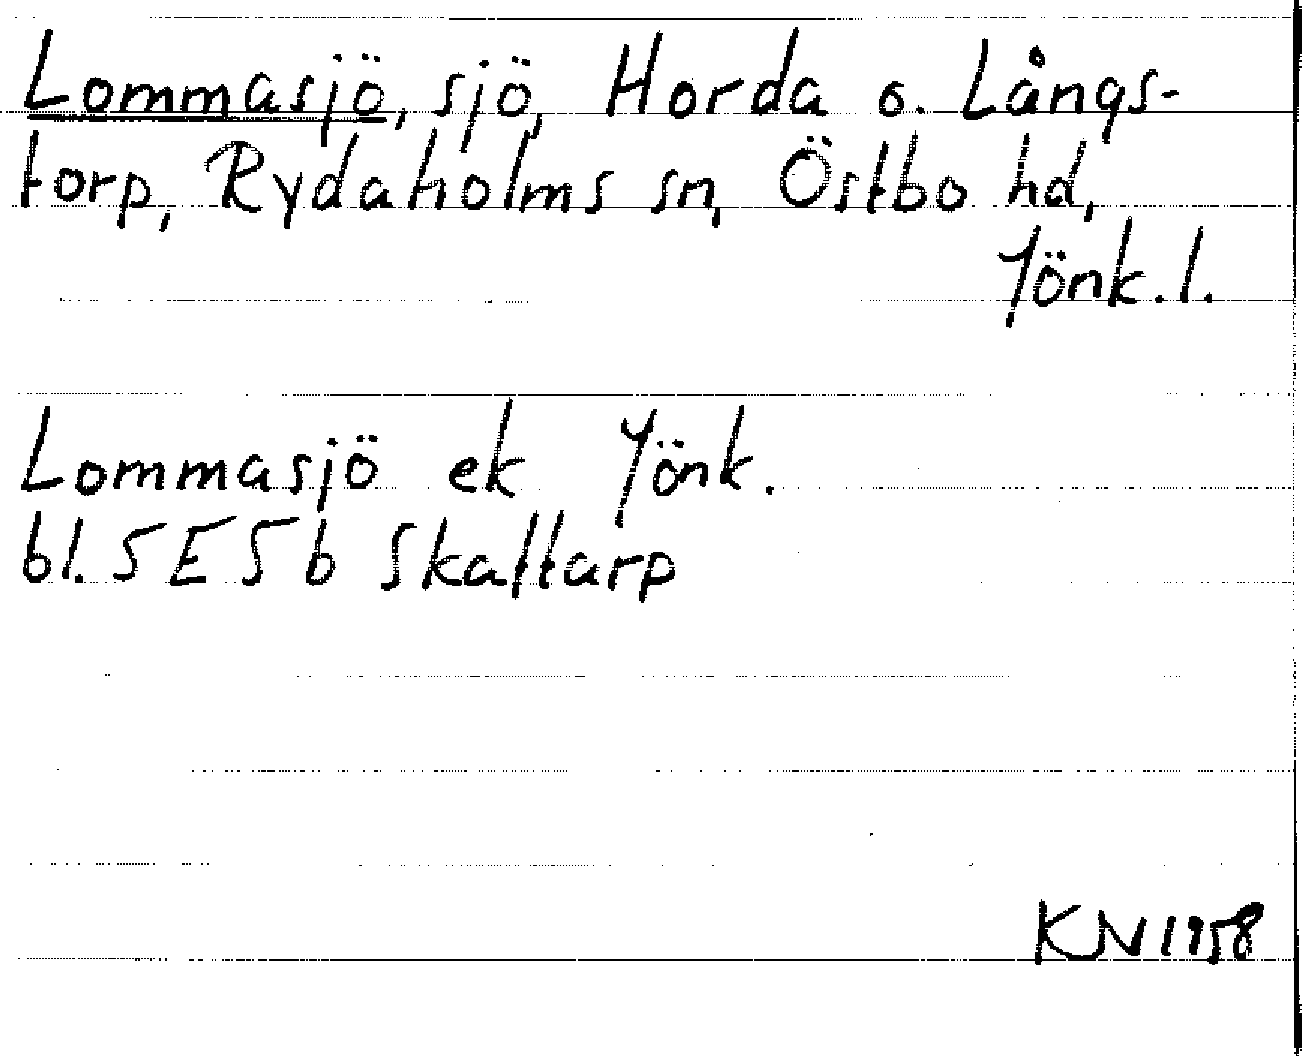 Lommasjö, sjö, Horda o. Långs-
torp, Rydaholms sn, Östbo hd,
Jönk. l.
Lommasjö ek Jönk.
bl. 5 E 5 b Skaftarp
KN 1958